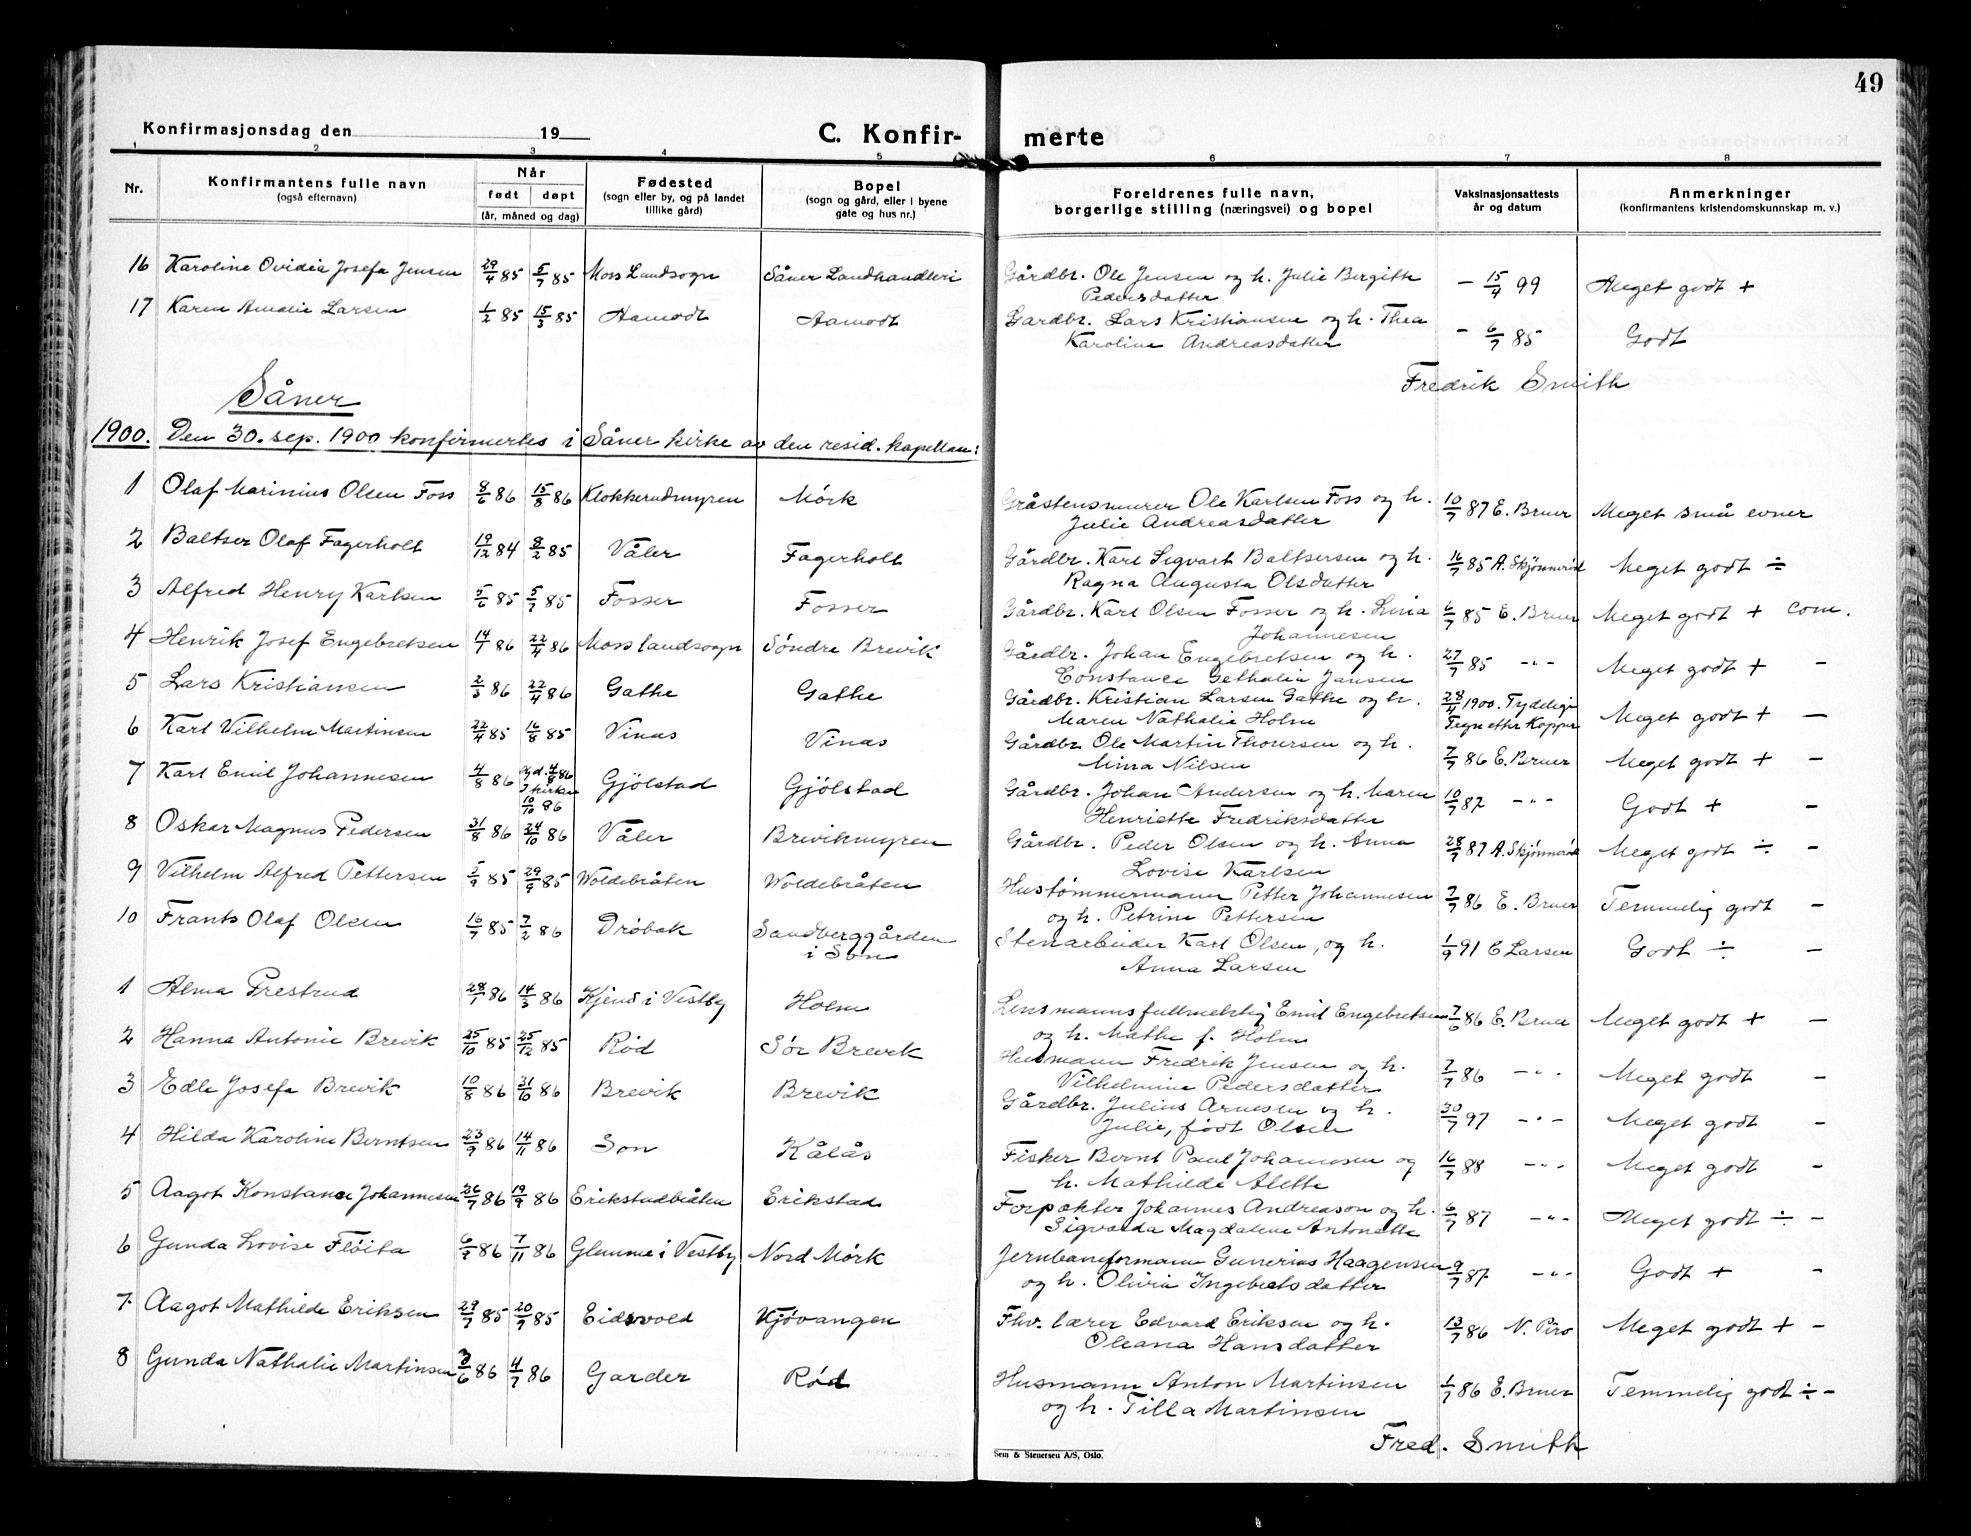 49
Konfirmasjonsdag den 19
C. Konfir- merte
1 2 3 4 5 6 7 8
Nr. Konfirmantens fulle navn (også efternavn) Når født døpt (år, måned og dag) Fødested (sogn eller by, og på landet tillike gård) Bopel (sogn og gård, eller i byene gate og hus nr.) Foreldrenes fulle navn, borgerlige stilling (næringsvei) og bopel Vaksinasjonsattests år og datum Anmerkninger (konfirmantens kristendomskunnskap m. v.)
16 Karoline Ovidia Josefa Jensen 29/4 85 5/7 85 Moss Landsogn Såner Landhandleri Gårdbr. Ole Jensen og h. Julie Bergitte Pedersdatter - 15/4 99 Meget godt +
17 Karen Amalie Larsen 1/2 85 15/3 85 Aamodt Aamodt Gardbr. Lars Kristiansen og h. Thea Karoline Andreasdatter - 6/7 85 Godt
Fredrik Smith
Såner
1900. Den 30. sep. 1900 konfirmertes i Såner kirke av den resid. kapellan:
1 Olaf Marinius Olsen Foss 8/6 86 15/8 86 Klokkerudmyren Mørk Gråstensmurer Ole Karlsen Foss og h. Julie Andreasdatter 10/7 87 E. Bruer Meget små evner
2 Baltser Olaf Fagerholt 19/12 84 8/2 85 Våler Fagerholt Gårdbr. Karl Sigvart Baltsersen og h. Ragna Augusta Olsdatter 16/7 85 A. Skjønnerød Meget godt ÷
3 Alfred Henry Karlsen 5/6 85 5/7 85 Fosser Fosser Gårdbr. Karl Olsen Fosser og h. Lina Johannesen 6/7 85 E. Bruer Meget godt + com.
4 Henrik Josef Engebretsen 14/1 86 22/4 86 Moss landsogn Søndre Brevik Gårdbr. Johan Engebretsen og h. Constance Gethalia Jansen 27/7 85 -"- Meget godt + -
5 Lars Kristiansen 2/3 86 22/4 86 Gathe Gathe Gårdbr. Kristian Larsen Gathe og h. Maren Nathalie Holm 28/4 1900. Tydelige Tegn etter Kopper Meget godt + -
6 Karl Vilhelm Martinsen 22/4 85 16/8 85 Vinas Vinas Gårdbr. Ole Martin Thoresen og h. Mina Nilsen 7/7 86 E. Bruer Meget godt + -
7 Karl Emil Johannesen 4/8 86 Hjd. 4/8 86 I kirken 10/10 86 Gjølstad Gjølstad Gårdbr. Johan Andersen og h. Maren Henriette Fredriksdatte 10/7 87 -"- Godt + -
8 Oskar Magnus Pedersen 31/8 86 24/10 86 Våler Brevikmyren Gårdbr. Peder Olsen og h. Anna Lovise Karlsen 28/7 87 A. Skjønnerød Meget godt ÷ -
9 Vilhelm Alfred Pettersen 5/9 85 29/9 85 Woldebråten Woldebråten Hustømmermann Petter Johannesen og h. Petrine Pettersen 7/7 86 E. Bruer Temmelig godt -
10 Frants Olaf Olsen 16/7 85 7/2 86 Drøbak Sandberggården i Son Stenarbeider Karl Olsen, og h. Anna Larsen 1/9 91 C Larsen Godt ÷ -
1 Alma Prestrud 28/1 86 14/3 86 Kjend i Vestby Holm Lensmannsfullmektig Emil Engebretsen og h. Mathe f. Holm 7/6 86 E. Bruer Meget godt + -
2 Hanna Antonie Brevik 25/10 85 25/12 85 Rød Sör Brevik Husmann Fredrik Jensen og h. Vilhelmine Pedersdatter 7/7 86 -"- Meget godt -
3 Edle Josefa Brevik 10/8 86 31/10 86 Brevik Brevik Gårdbr. Julius Arnesen og h. Julie, født Olsen 30/7 97 -"- Meget godt -
4 Hilda Karoline Berntsen 23/9 86 14/11 86 Son Kålås Fisker Bernt Paul Johannesen og h. Mathilde Alette 16/7 88 -"- Meget godt -
5 Aagot Konstance Johannesen 26/7 86 19/9 86 Erikstadbråten Erikstad Forpakter Johannes Andreason og h. Sigvarda Magdalene Antonette 6/7 87 -"- Meget godt ÷ -
6 Gunda Lovise Fløita 6/9 86 7/11 86 Glenne i Vestby Nord Mørk Jernbaneformann Gunerius Haagensen og h. Olivia Ingebretsdatter 9/7 87 -"- Godt + -
7. Aagot Mathilde Eriksen 29/7 85 20/9 85 Eidsvold Kjøvangen Fhv. lærer Edvard Eriksen og h. Oleana Hansdatter 13/7 86 N. Piro Meget godt + -
8 Gunda Nathalie Martinsen 3/6 86 4/7 86 Garder Rød Husmann Anton Martinsen og h. Tilla Martinsen 1/7 86 E. Bruer Temmelig godt ÷ -
Fred. Smith
Sem & Stenersen A/S, Oslo.